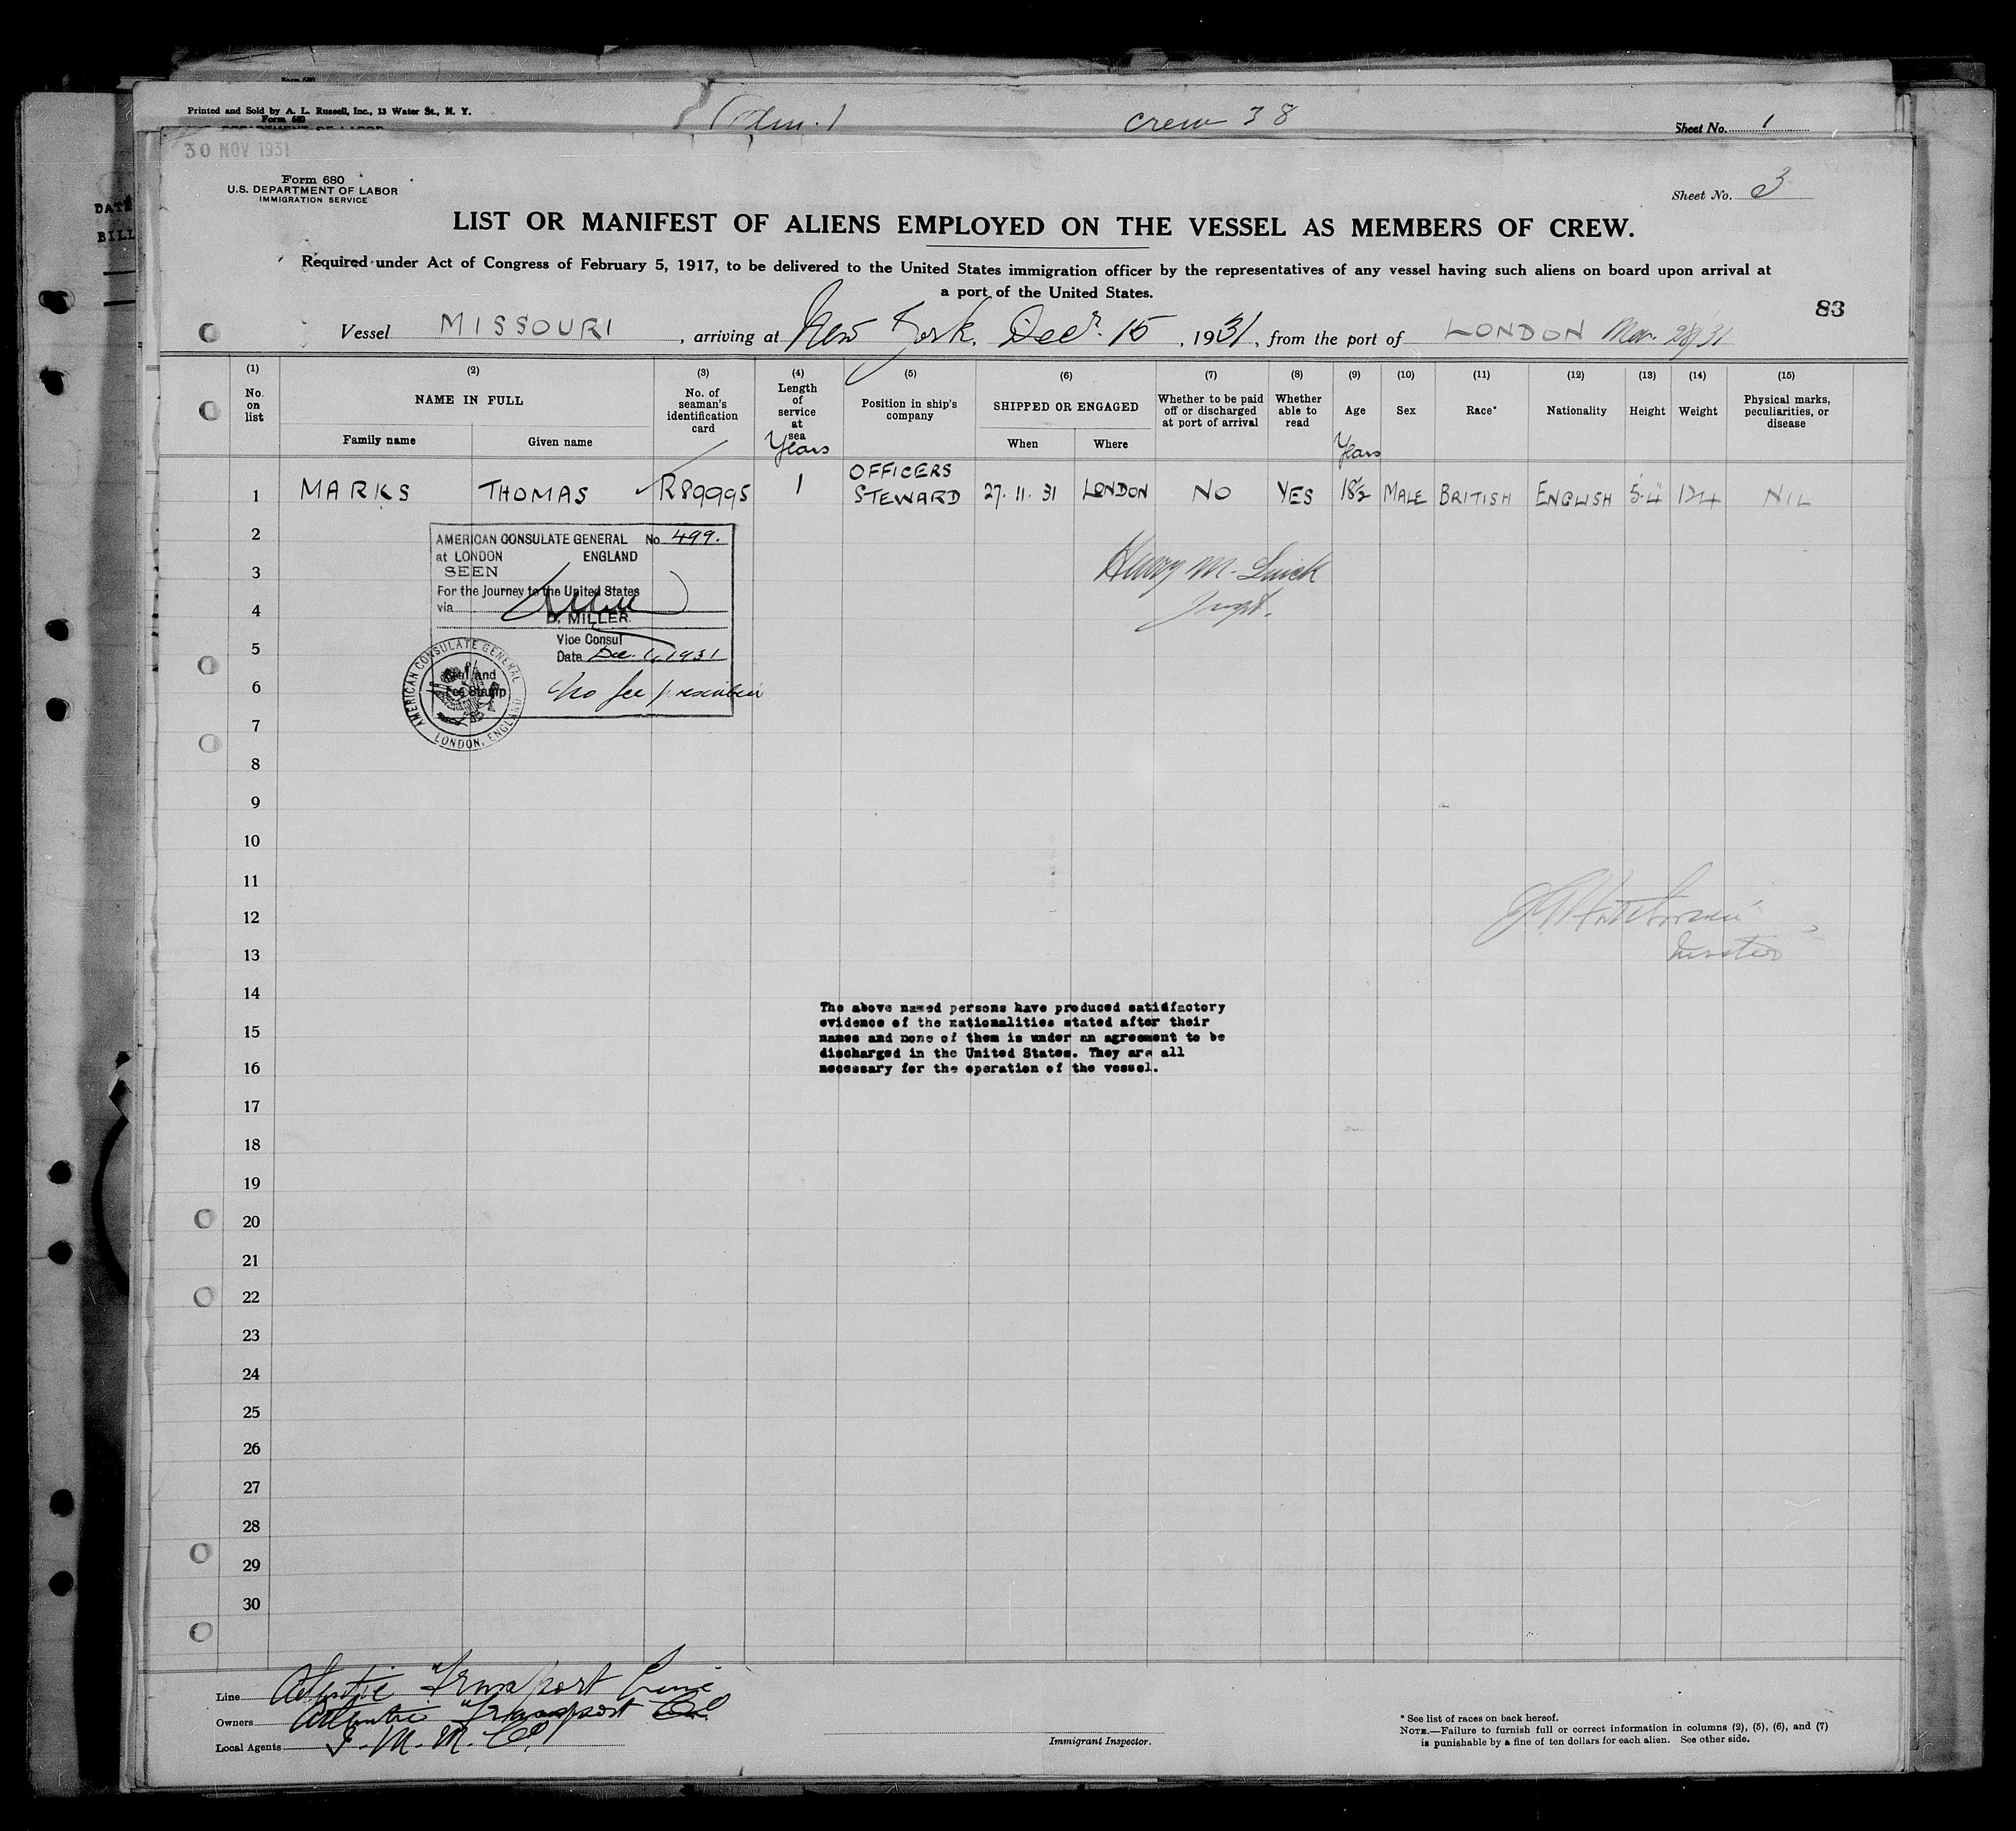 Form 680
Printed and Sold by A. L. Russell, Inc., 13 Water St., N. Y.
Form 680
crew 38
Sheet No. 1
DATE
BILL
30 NOV 1931
Form 680
U.S. DEPARTMENT OF LABOR
IMMIGRATION SERVICE
Sheet No. 3
LIST OR MANIFEST OF ALIENS EMPLOYED ON THE VESSEL AS MEMBERS OF CREW.
Required under Act of Congress of February 5, 1917, to be delivered to the United States immigration officer by the representatives of any vessel having such aliens on board upon arrival at
a port of the United States.
83
Vessel MISSOURI, arriving at New York, Decr. 15, 1931, from the port of LONDON
(1) (2) (3) (4) (5) (6) (7) (8) (9) (10) (11) (12) (13) (14) (15)
No. on list
NAME IN FULL
Family name
Given name
No. of seaman's identification card
Length of service at sea
Years
Position in ship's company
SHIPPED OR ENGAGED
When
Where
Whether to be paid off or discharged at port of arrival
Whether able to read
Age
Years
Sex
Race*
Nationality
Height
Weight
Physical marks, peculiarities, or disease
1 MARKS THOMAS R89995 1 OFFICERS STEWARD 27.11.31 LONDON NO YES 18½ MALE BRITISH ENGLISH 5.4 124 NIL
2
3
4
5
6
7
8
9
10
11
12
13
14
15
16
17
18
19
20
21
22
23
24
25
26
27
28
29
30
AMERICAN CONSULATE GENERAL No 499.
at LONDON ENGLAND
SEEN
For the journey to the United States
via
D. MILLER
Vice Consul
Date Dec. 1, 1931
Seal and
Fee Stamp
No fee prescribed
AMERICAN CONSULATE GENERAL
LONDON, ENGLAND
Henry M.
Inspt.
The above named persons have produced satisfactory
evidence of the nationalities stated after their
names and none of them is under an agreement to be
discharged in the United States. They are all
necessary for the operation of the vessel.
Line Atlantic Transport Line
Owners Atlantic Transport Co
Local Agents I. M. M. Co.
Immigrant Inspector.
* See list of races on back hereof.
NOTE.—Failure to furnish full or correct information in columns (2), (5), (6), and (7)
is punishable by a fine of ten dollars for each alien. See other side.